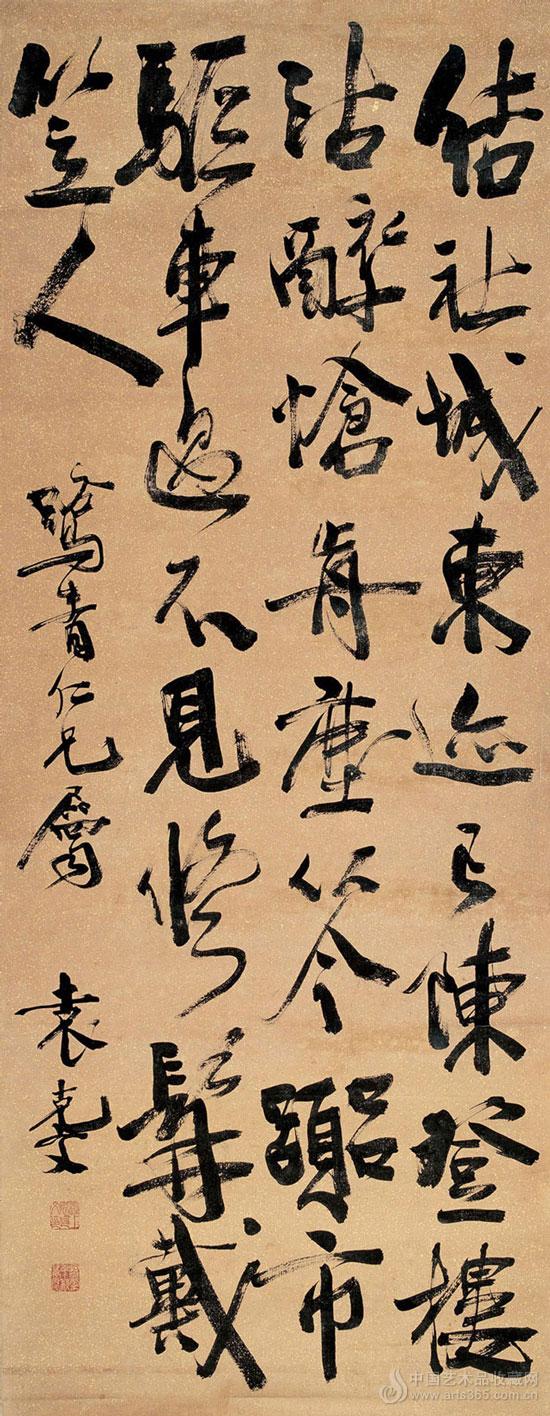 結社城東迹已陳登樓
沽醉愴前塵从今囂市
驅車過不見脩髯戴
笠人
鷺青仁兄屬
袁克文
中国艺术品收藏网
www.arts365.com.cn